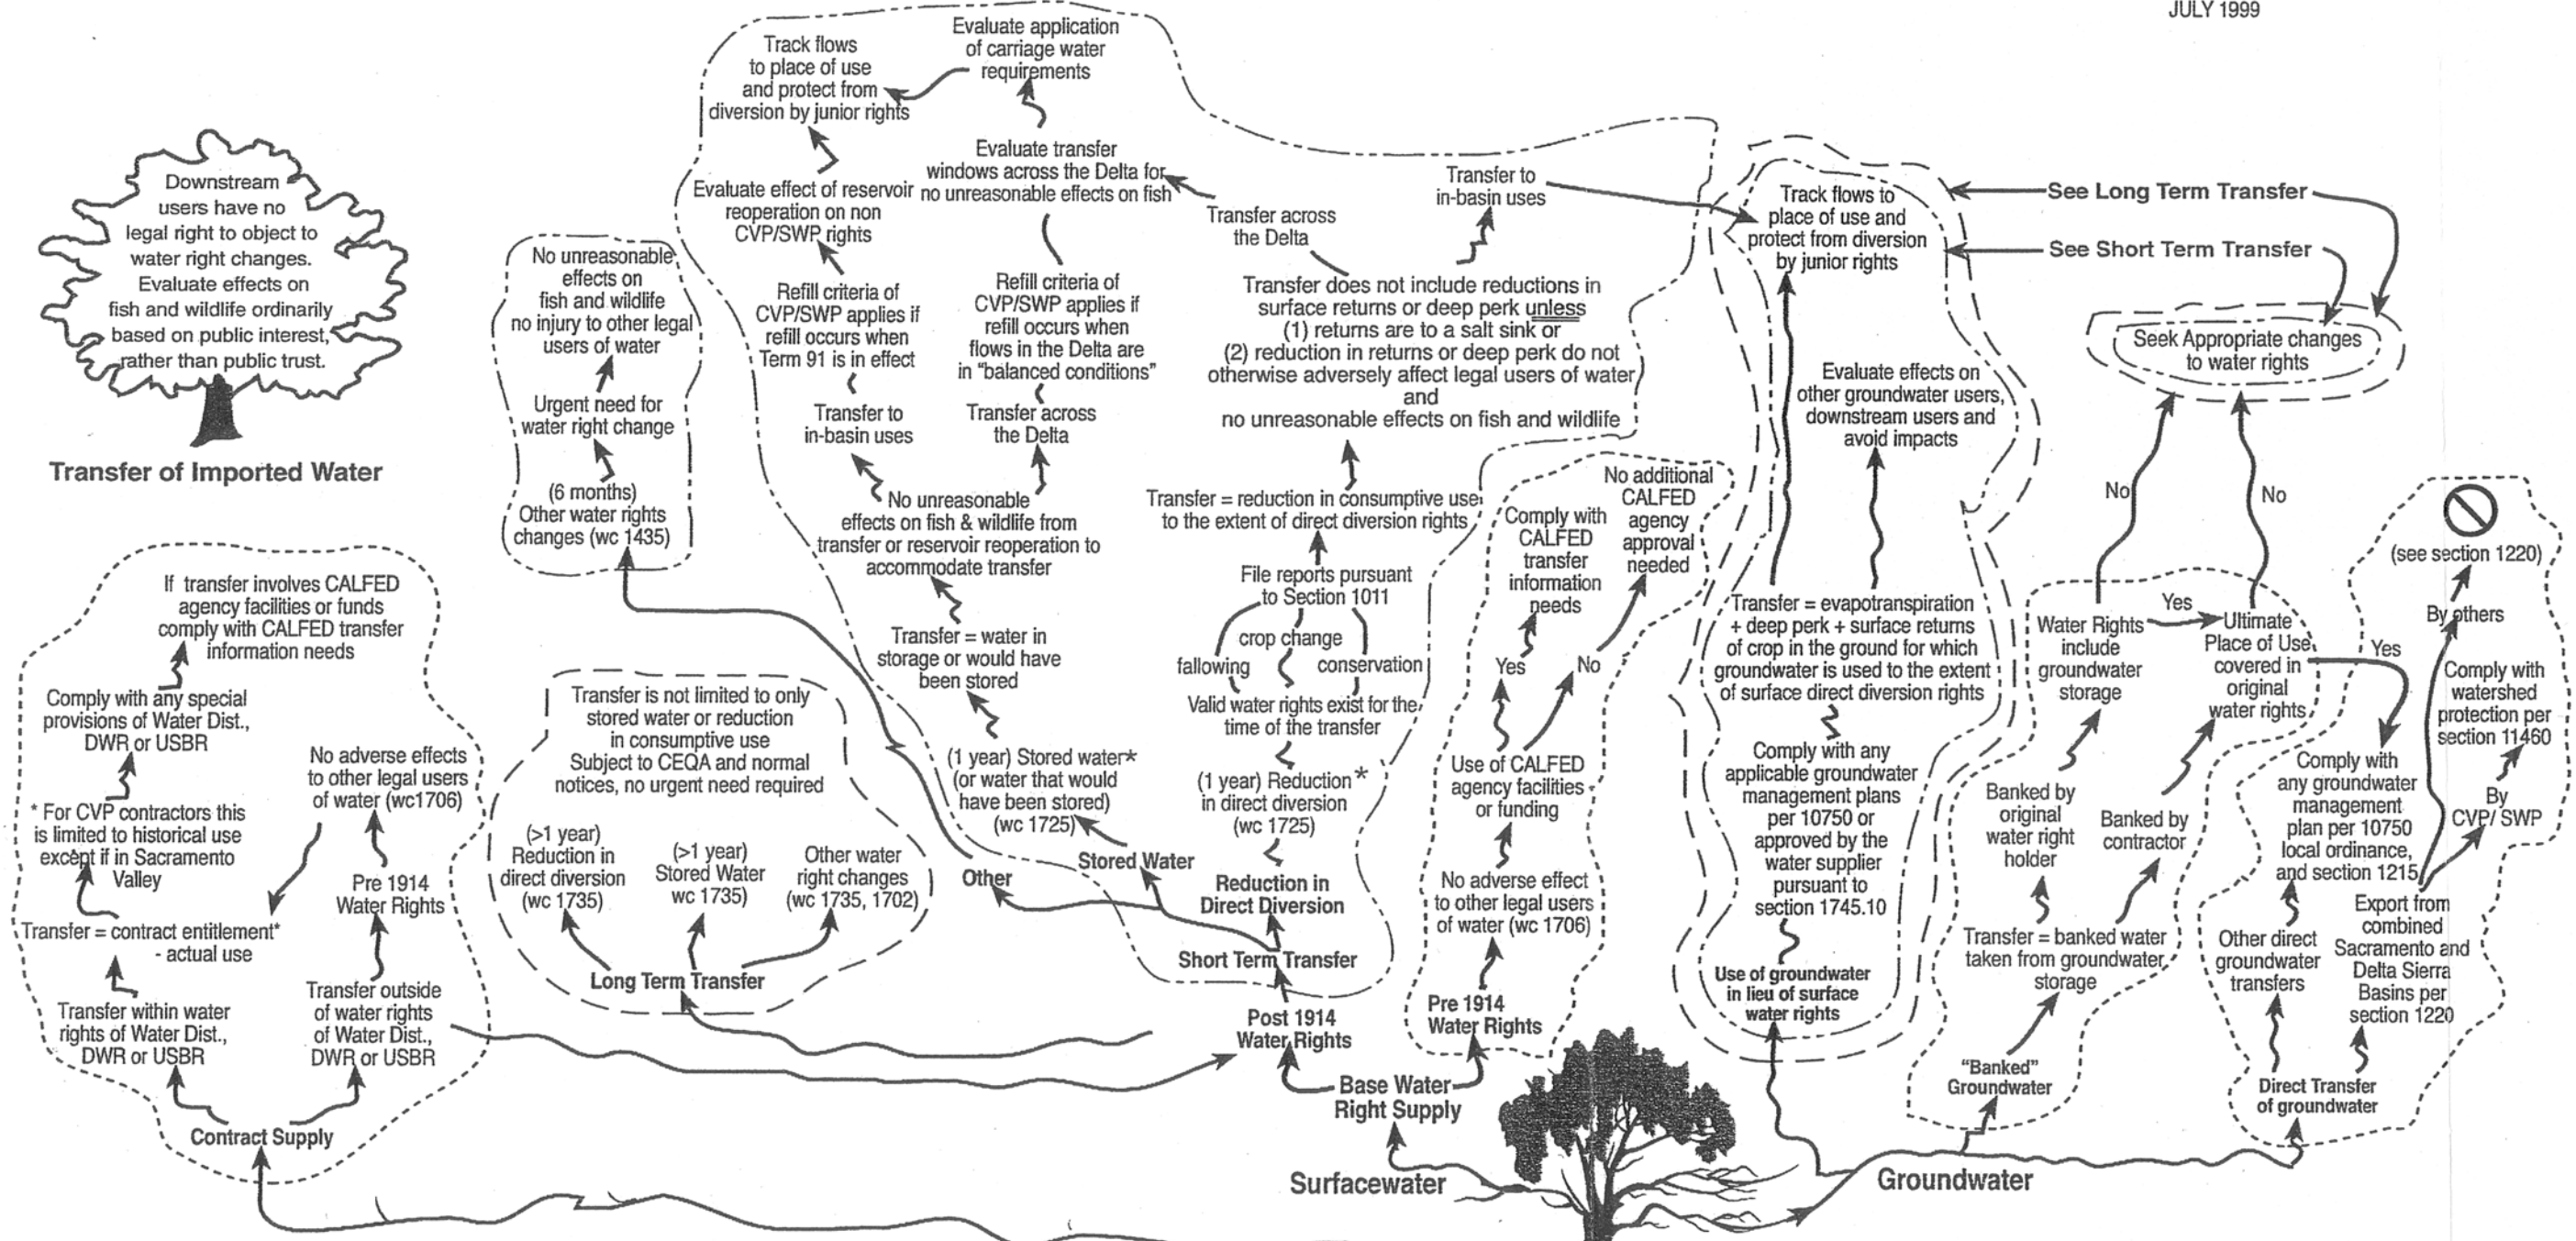 JULY 1999
Downstream
users have no
legal right to object to
water right changes.
Evaluate effects on
fish and wildlife ordinarily
based on public interest,
rather than public trust.
Transfer of Imported Water
If transfer involves CALFED
agency facilities or funds
comply with CALFED transfer
information needs
Comply with any special
provisions of Water Dist.,
DWR or USBR
* For CVP contractors this
is limited to historical use
except if in Sacramento
Valley
Transfer = contract entitlement*
- actual use
Transfer within water
rights of Water Dist.,
DWR or USBR
No adverse effects
to other legal users
of water (wc1706)
Pre 1914
Water Rights
Transfer outside
of water rights
of Water Dist.,
DWR or USBR
Contract Supply
No unreasonable
effects on
fish and wildlife
no injury to other legal
users of water
Urgent need for
water right change
(6 months)
Other water rights
changes (wc 1435)
Transfer is not limited to only
stored water or reduction
in consumptive use
Subject to CEQA and normal
notices, no urgent need required
(>1 year)
Reduction in
direct diversion
(wc 1735)
(>1 year)
Stored Water
wc 1735)
Other water
right changes
(wc 1735, 1702)
Long Term Transfer
Track flows
to place of use
and protect from
diversion by junior rights
Evaluate application
of carriage water
requirements
Evaluate effect of reservoir
reoperation on non
CVP/SWP rights
Evaluate transfer
windows across the Delta for
no unreasonable effects on fish
Refill criteria of
CVP/SWP applies if
refill occurs when
Term 91 is in effect
Refill criteria of
CVP/SWP applies if
refill occurs when
flows in the Delta are
in "balanced conditions"
Transfer to
in-basin uses
Transfer across
the Delta
No unreasonable
effects on fish & wildlife from
transfer or reservoir reoperation to
accommodate transfer
Transfer = water in
storage or would have
been stored
(1 year) Stored water*
(or water that would
have been stored)
(wc 1725)
Other
Stored Water
Transfer across
the Delta
Transfer to
in-basin uses
Transfer does not include reductions in
surface returns or deep perk unless
(1) returns are to a salt sink or
(2) reduction in returns or deep perk do not
otherwise adversely affect legal users of water
and
no unreasonable effects on fish and wildlife
Transfer = reduction in consumptive use
to the extent of direct diversion rights
File reports pursuant
to Section 1011
crop change
fallowing
conservation
Valid water rights exist for the
time of the transfer
(1 year) Reduction*
in direct diversion
(wc 1725)
Reduction in
Direct Diversion
Short Term Transfer
Post 1914
Water Rights
Base Water
Right Supply
Surfacewater
No additional
CALFED
agency
approval
needed
Comply with
CALFED
transfer
information
needs
Yes
No
Use of CALFED
agency facilities
or funding
No adverse effect
to other legal users
of water (wc 1706)
Pre 1914
Water Rights
Track flows to
place of use and
protect from diversion
by junior rights
Evaluate effects on
other groundwater users,
downstream users and
avoid impacts
Transfer = evapotranspiration
+ deep perk + surface returns
of crop in the ground for which
groundwater is used to the extent
of surface direct diversion rights
Comply with any
applicable groundwater
management plans
per 10750 or
approved by the
water supplier
pursuant to
section 1745.10
Use of groundwater
in lieu of surface
water rights
See Long Term Transfer
See Short Term Transfer
Seek Appropriate changes
to water rights
No
No
Water Rights
include
groundwater
storage
Yes
Ultimate
Place of Use
covered in
original
water rights
Yes
Banked by
original
water right
holder
Banked by
contractor
Transfer = banked water
taken from groundwater
storage
"Banked"
Groundwater
(see section 1220)
By others
Comply with
watershed
protection per
section 11460
By
CVP/ SWP
Comply with
any groundwater
management
plan per 10750
local ordinance,
and section 1215
Other direct
groundwater
transfers
Export from
combined
Sacramento and
Delta Sierra
Basins per
section 1220
Direct Transfer
of groundwater
Groundwater